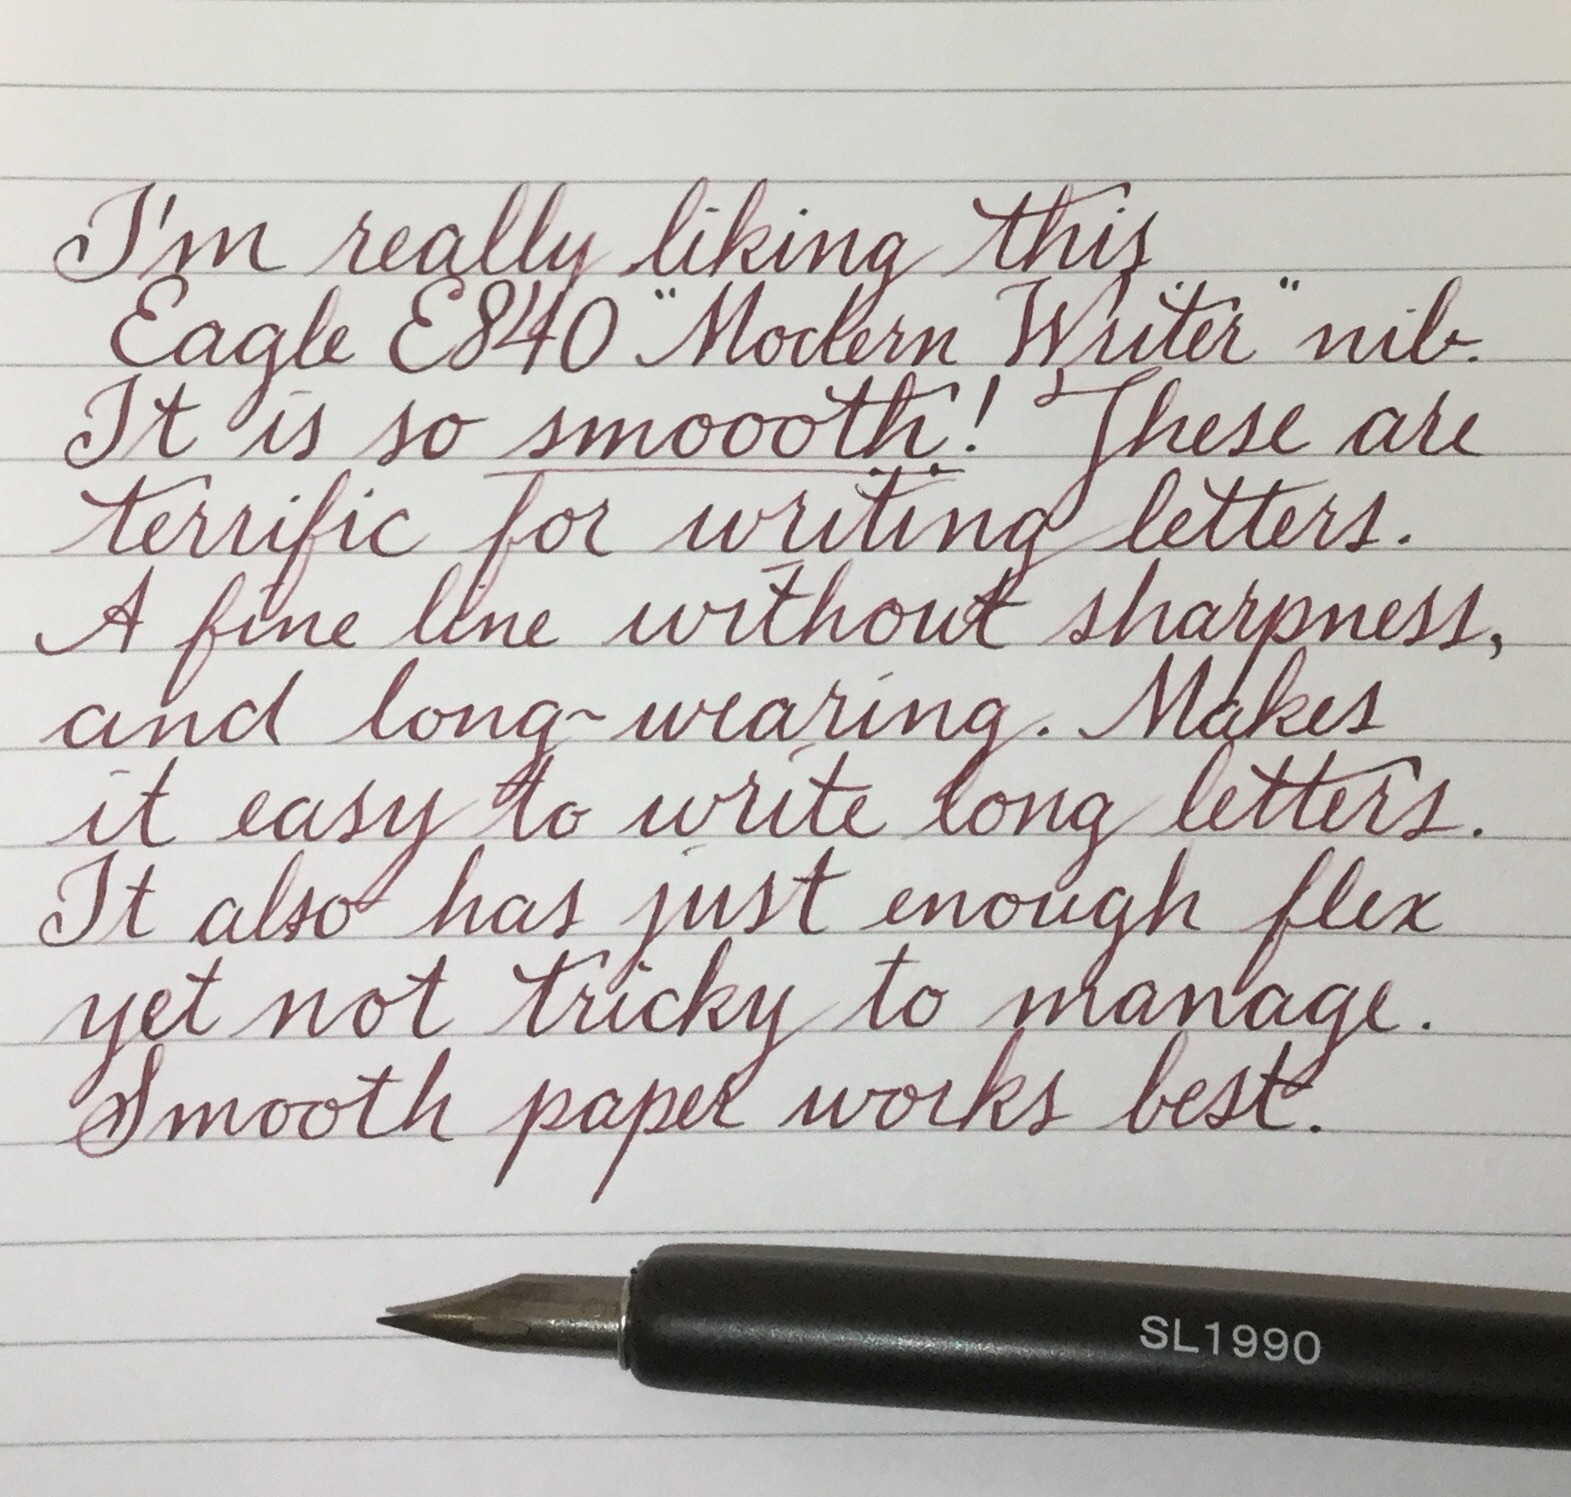 I'm really liking this
Eagle E840 "Modern Writer" nib.
It is so smoooth! These are
terrific for writing letters.
A fine line without sharpness,
and long-wearing. Makes
it easy to write long letters.
It also has just enough flex
yet not tricky to manage.
Smooth paper works best.
SL1990